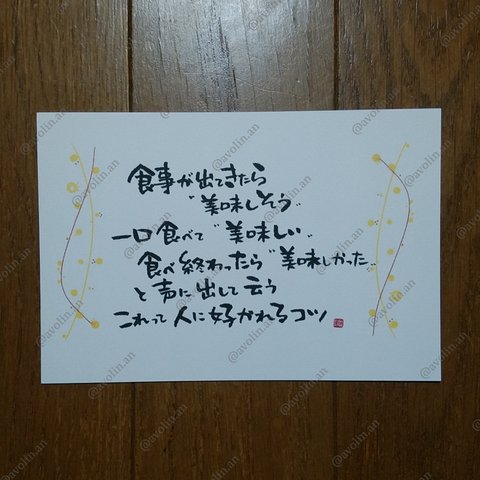 食事が出てきたら
"美味しそう"
一口食べて"美味しい"
食べ終わったら"美味しかった"
と声に出して云う
これって人に好かれるコツ
@avolin.an